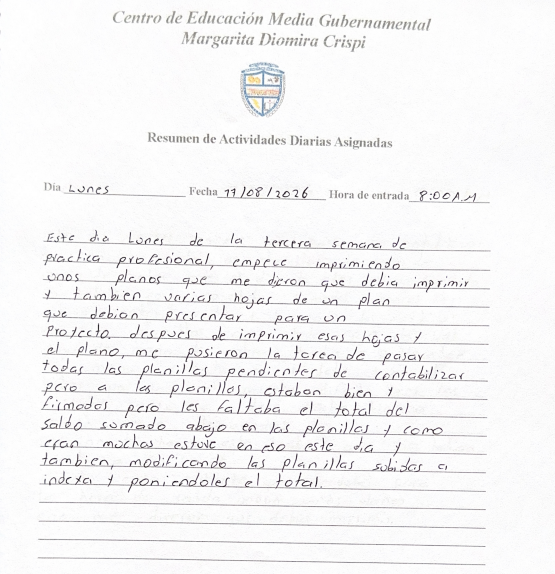 Centro de Educación Media Gubernamental
Margarita Diomira Crispi
Resumen de Actividades Diarias Asignadas
Día Lunes Fecha 17/08/2026 Hora de entrada 8:00 A.M
Este dia Lunes de la tercera semana de
practica profesional, empece imprimiendo
unos planos que me dieron que debia imprimir
y tambien varias hojas de un plan
que debian presentar para un
Proyecto. despues de imprimir esas hojas y
el plano, me pusieron la tarea de pasar
todas las planillas pendientes de contabilizar
pero a las planillas, estaban bien y
firmadas pero les faltaba el total del
saldo sumado abajo en las planillas y como
eran muchas estuve en eso este dia y
tambien, modificando las planillas subidas a
indexa y poniendoles el total.